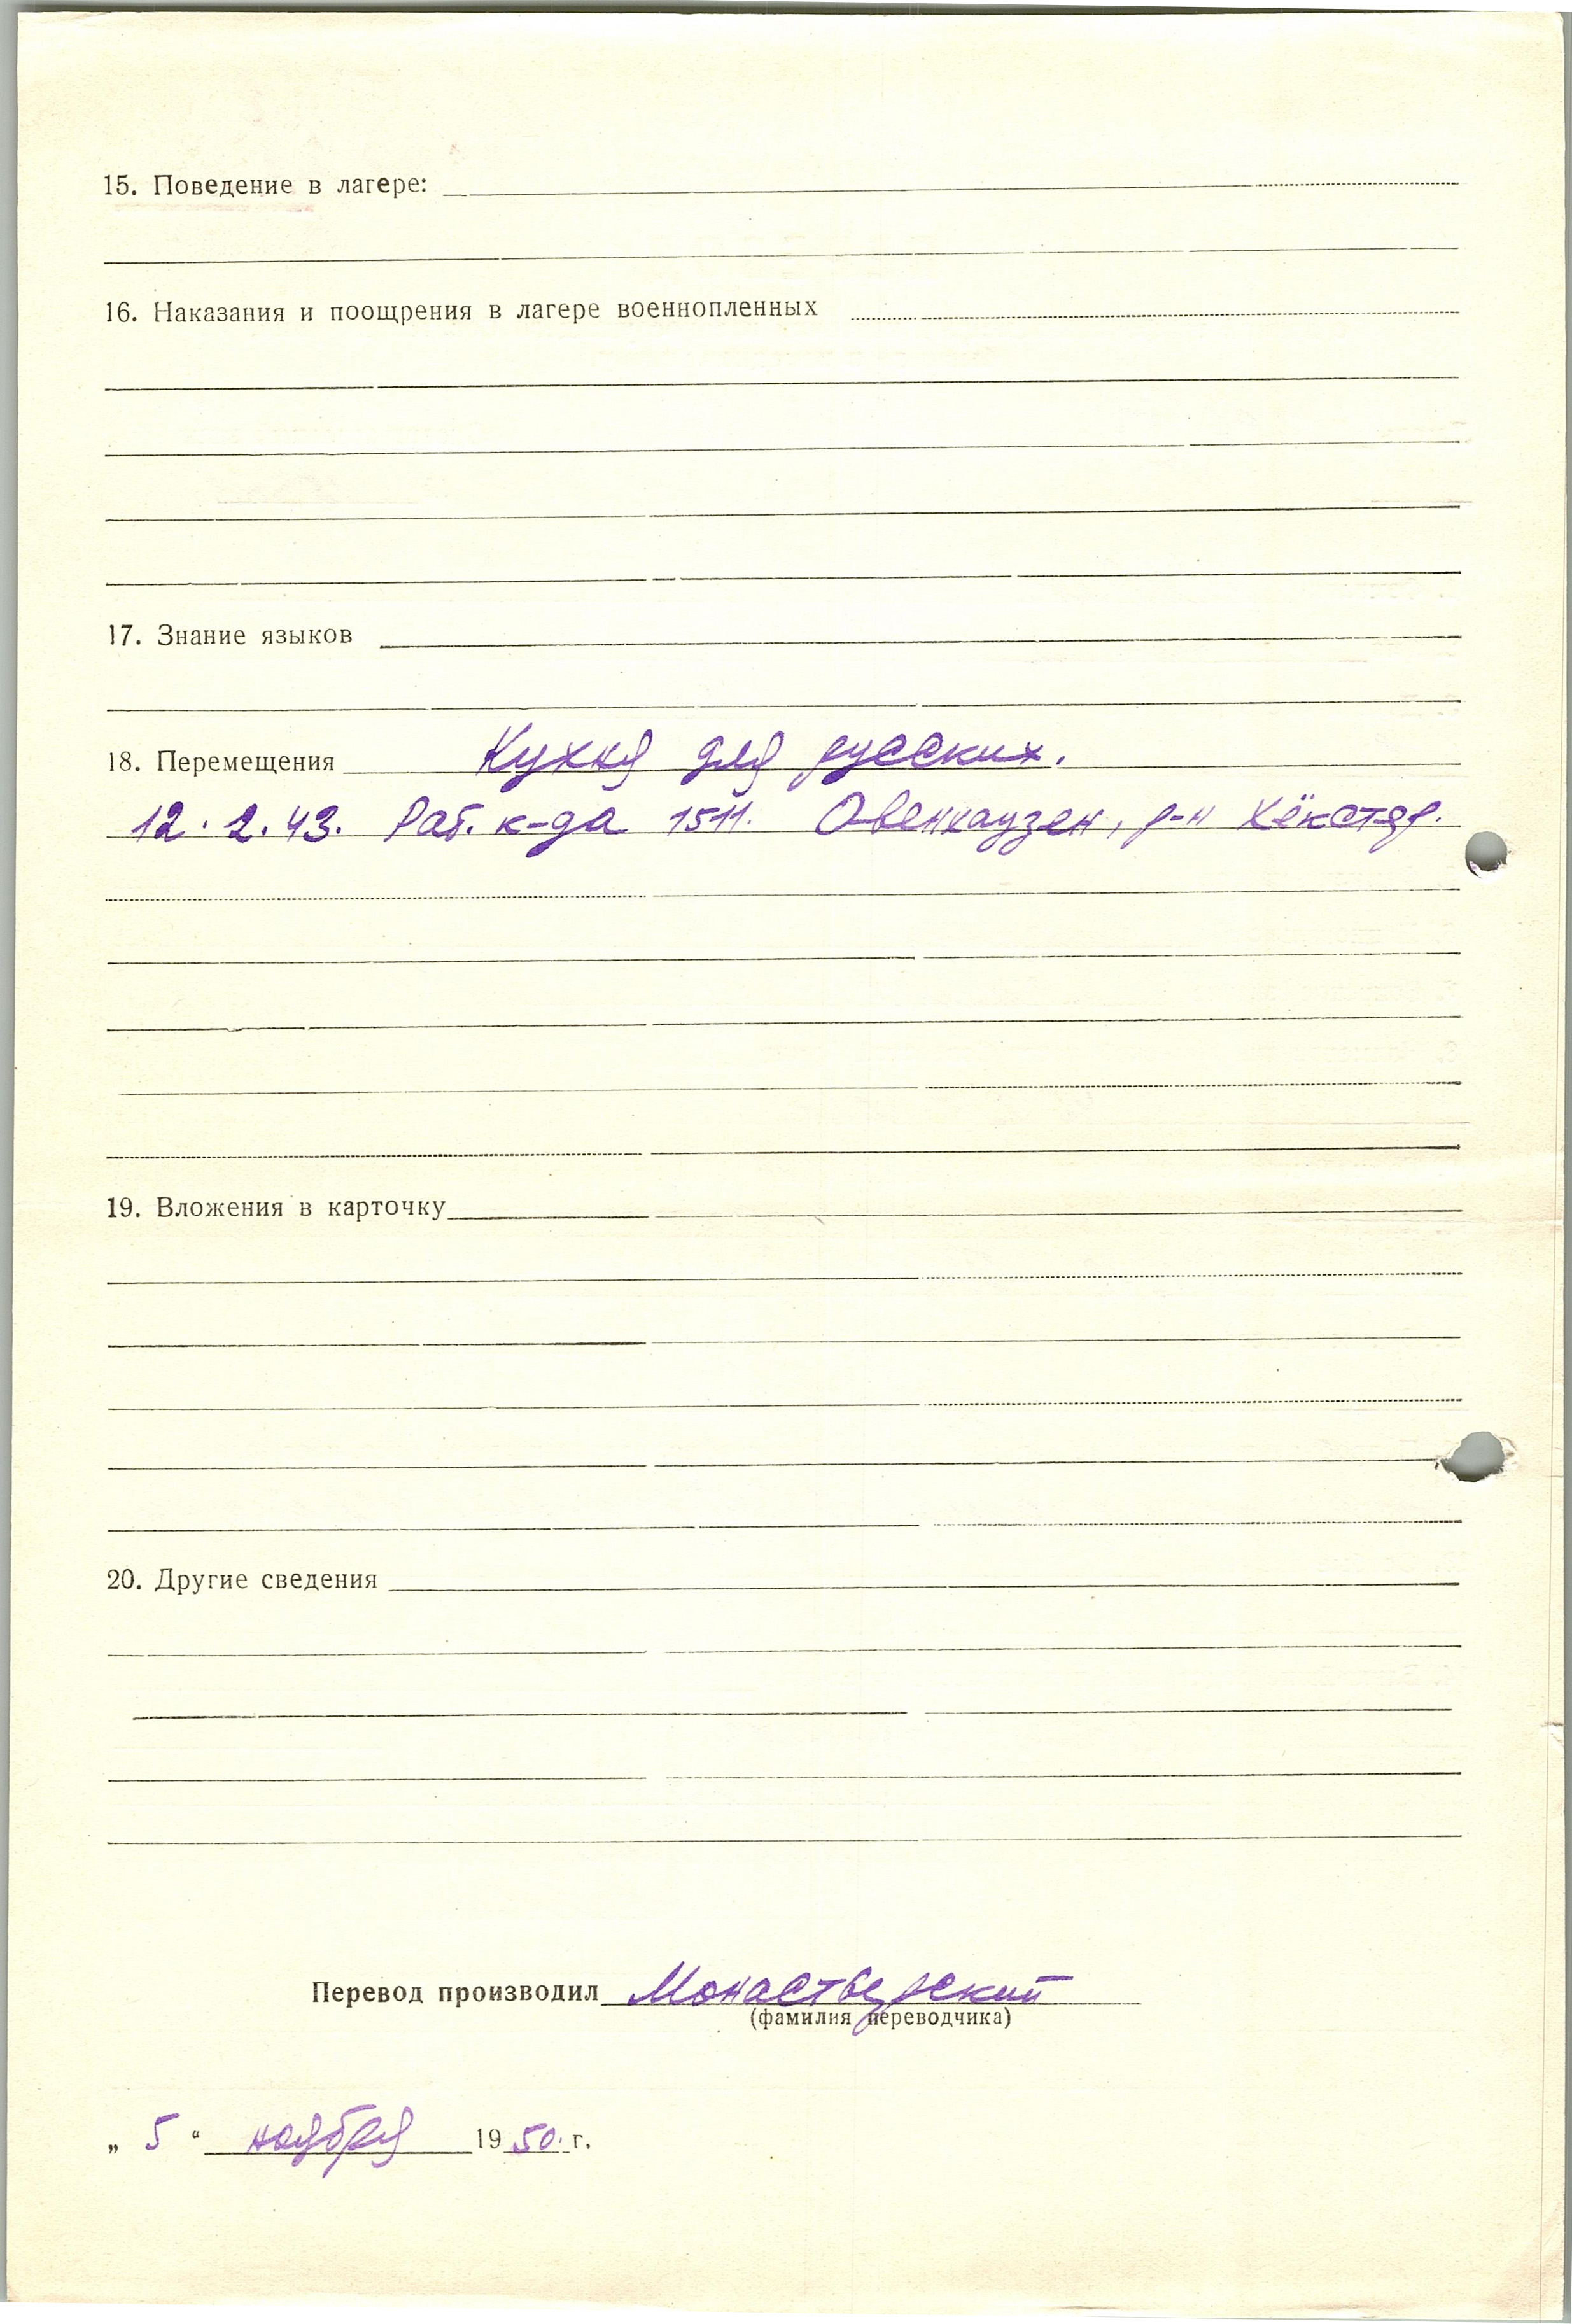 15. Поведение в лагере:
16. Наказания и поощрения в лагере военнопленных
17. Знание языков
18. Перемещения Кухня для русских.
12.2.43. Раб. к-да 1511. Овенхаузен, р-н Хёкстер.
19. Вложения в карточку
20. Другие сведения
Перевод производил Монастырский
(фамилия переводчика)
„ 5 “ ноября 1950. г.